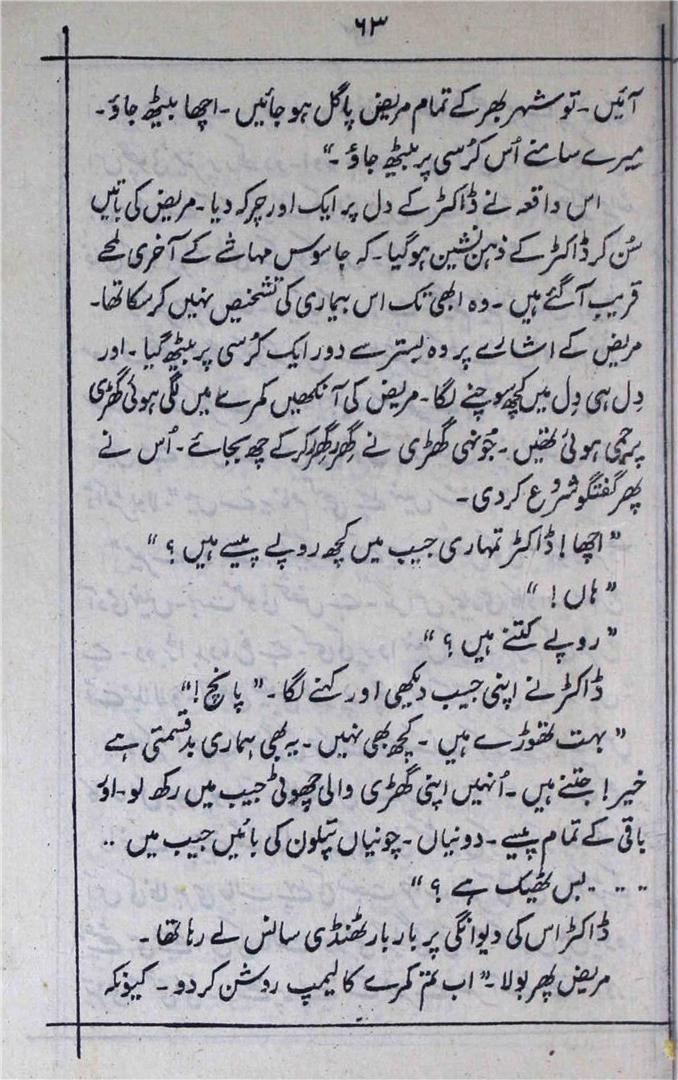 ٦٣
آئیں۔ تو شہر بھر کے تمام مریض پاگل ہو جائیں۔ اچھا بیٹھ جاؤ۔
میرے سامنے اُس کرُسی پر بیٹھ جاؤ۔"
اس واقعہ نے ڈاکٹر کے دل پر ایک اور چرکہ دیا۔ مریض کی باتیں
سُن کر ڈاکٹر کے ذہن نشین ہو گیا۔ کہ جاسوس مہاشے کے آخری لمحے
قریب آ گئے ہیں۔ وہ ابھی تک اس بیماری کی تشخیص نہیں کر سکا تھا۔
مریض کے اشارے پر وہ بستر سے دور ایک کرُسی پر بیٹھ گیا۔ اور
دِل ہی دِل میں کچھ سوچنے لگا۔ مریض کی آنکھیں کمرے میں لگی ہوئی گھڑی
پر جمی ہوئی تھیں۔ جُونہی گھڑی نے گِھر گِھر کر کے چھ بجائے۔ اُس نے
پھر گفتگو شروع کر دی۔
"اچھا! ڈاکٹر تمہاری جیب میں کچھ روپے پیسے ہیں؟"
"ہاں!"
"روپے کتنے ہیں؟"
ڈاکٹر نے اپنی جیب دیکھی اور کہنے لگا۔ "پانچ!"
"بہت تھوڑے ہیں۔ کچھ بھی نہیں۔ یہ بھی ہماری بدقسمتی ہے
خیر! جتنے ہیں۔ اُنہیں اپنی گھڑی والی چھوٹی جیب میں رکھ لو۔ اور
باقی کے تمام پیسے۔ دونیاں۔ چونیاں پتلون کی بائیں جیب میں ..
.. .. بس ٹھیک ہے؟"
ڈاکٹر اس کی دیوانگی پر بار بار ٹھنڈی سانس لے رہا تھا۔
مریض پھر بولا۔ "اب تم کمرے کا لیمپ روشن کر دو۔ کیونکہ